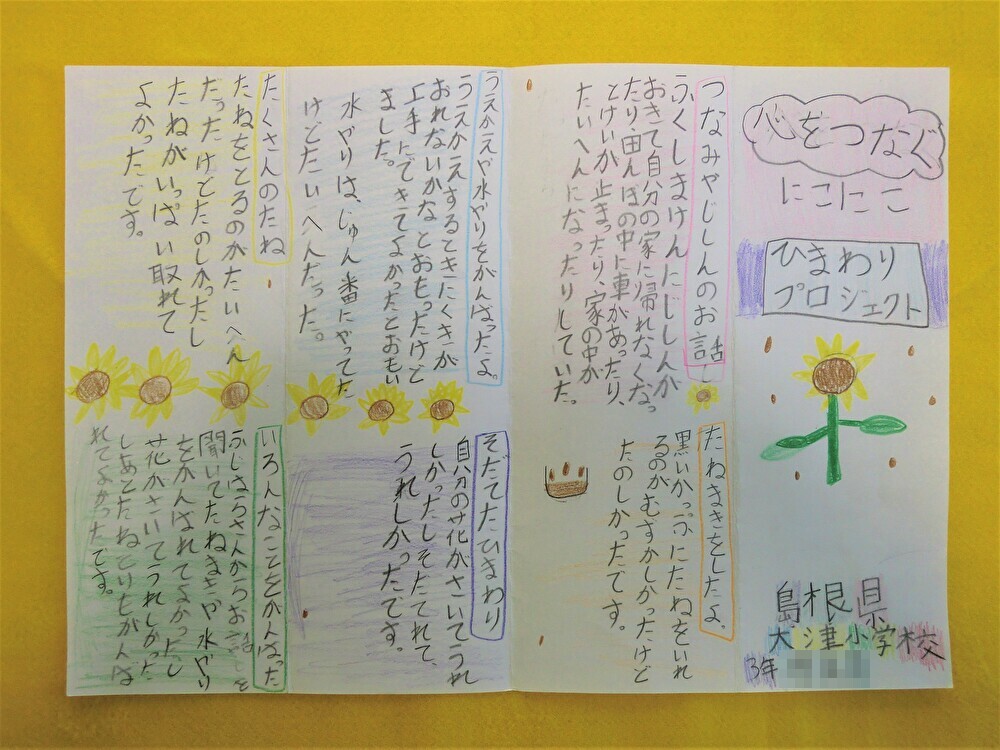 心をつなぐ
にこにこ
ひまわり
プロジェクト
島根県
大津小学校
3年
つなみやじしんのお話し
ふくしまけんにじしんが
おきて自分の家に帰れなくなっ
たり、田んぼの中に車があったり、
とけいが止まったり、家の中が
たいへんになったりしていた。
たねまきをしたよ。
黒いかっぷにたねをいれ
るのがむずかしかったけど
たのしかったです。
うえかえや水やりをがんばったよ。
うえかえするときにくきが
おれないかなとおもったけど
上手にできてよかったとおもい
ました。
水やりは、じゅん番にやってた
けどたいへんだった。
そだてたひまわり
自分の花がさいてうれ
しかったしそだてれて、
うれしかったです。
たくさんのたね
たねをとるのがたいへん
だったけどたのしかったし
たねがいっぱい取れて
よかったです。
いろんなことをがんばった
ふじはらさんからお話を
聞いてたねまきや水やり
をがんばれてよかったし
花がさいてうれしかった
しあとたねとりもがんば
れてよかったです。